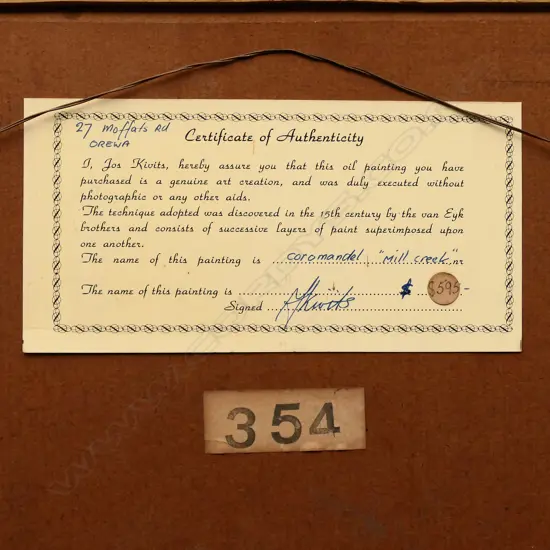 27 Moffats Rd
OREWA
Certificate of Authenticity
I, Jos Kivits, hereby assure you that this oil painting you have
purchased is a genuine art creation, and was duly executed without
photographic or any other aids.
The technique adopted was discovered in the 15th century by the van Eyk
brothers and consists of successive layers of paint superimposed upon
one another.
The name of this painting is coromandel "Mill creek" nr
The name of this painting is $ $595-
Signed J Kivits
354